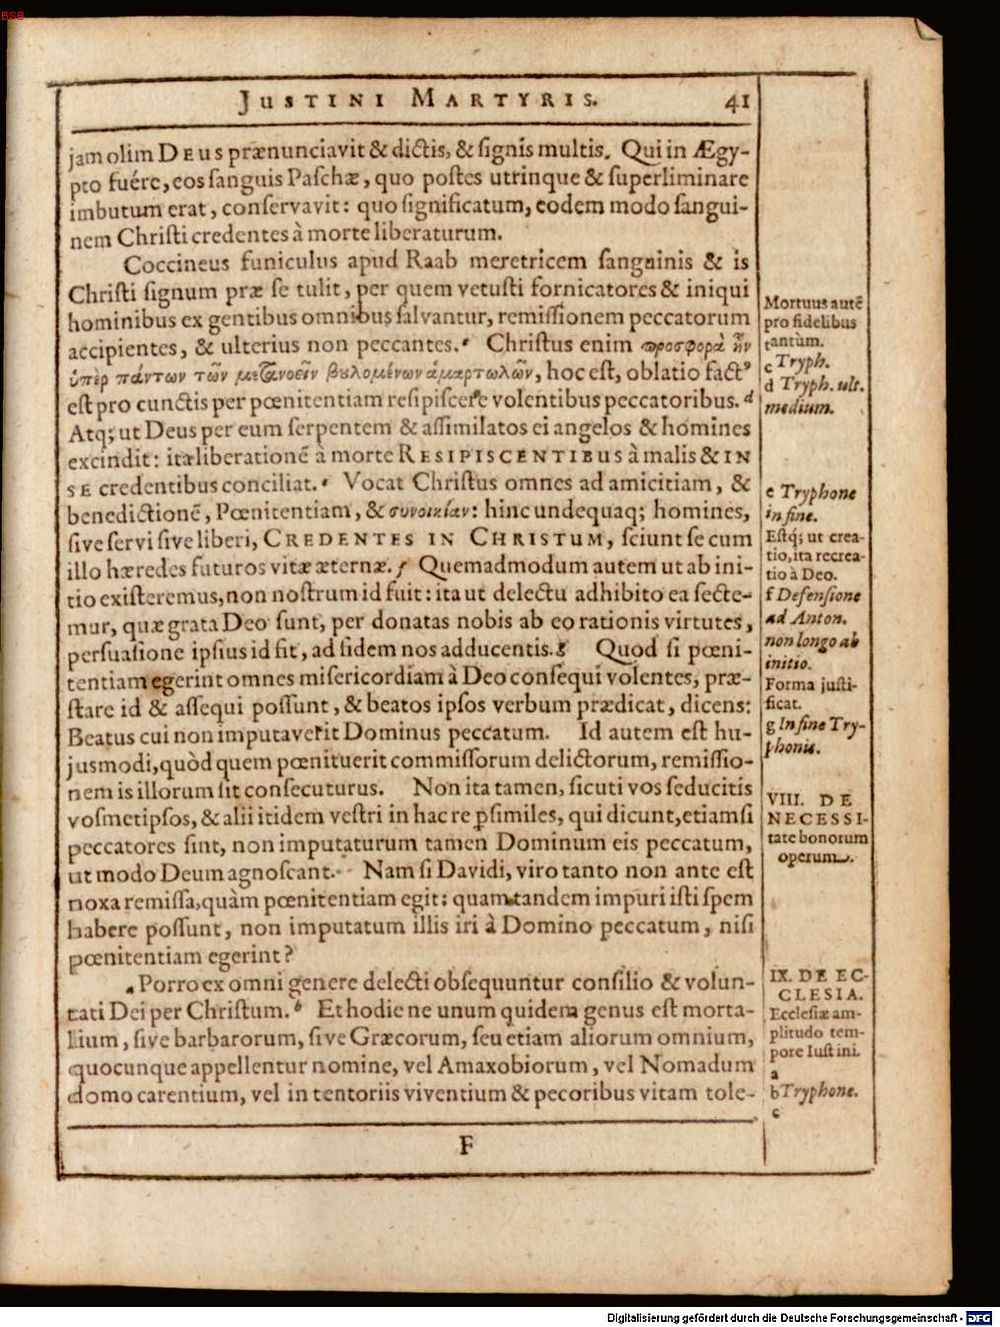 BSB
JUSTINI MARTYRIS. 41
jam olim DEUS prænunciavit & dictis, & signis multis. Qui in Ægy-
pto fuére, eos sanguis Paschæ, quo postes utrinque & superliminare
imbutum erat, conservavit: quo significatum, eodem modo sangui-
nem Christi credentes à morte liberaturum.
Coccineus funiculus apud Raab meretricem sanguinis & is
Christi signum præ se tulit, per quem vetusti fornicatores & iniqui
hominibus ex gentibus omnibus salvantur, remissionem peccatorum
accipientes, & ulterius non peccantes.ᶜ Christus enim προσφορὰ ἦν
ὑπὲρ πάντων τῶν μετανοεῖν βουλομένων ἁμαρτωλῶν, hoc est, oblatio factꝰ
est pro cunctis per pœnitentiam resipiscere volentibus peccatoribus.ᵈ
Atq; ut Deus per eum serpentem & assimilatos ei angelos & homines
excindit: ita liberationẽ à morte RESIPISCENTIBUS à malis & IN
SE credentibus conciliat.ᵉ Vocat Christus omnes ad amicitiam, &
benedictionẽ, Pœnitentiam, & συνοικίαν: hinc undequaq; homines,
sive servi sive liberi, CREDENTES IN CHRISTUM, sciunt se cum
illo hæredes futuros vitæ æternæ.f Quemadmodum autem ut ab ini-
tio existeremus, non nostrum id fuit: ita ut delectu adhibito ea secte-
mur, quæ grata Deo sunt, per donatas nobis ab eo rationis virtutes,
persuasione ipsius id fit, ad fidem nos adducentis.g Quod si pœni-
tentiam egerint omnes misericordiam à Deo consequi volentes, præ-
stare id & assequi possunt, & beatos ipsos verbum prædicat, dicens:
Beatus cui non imputaverit Dominus peccatum. Id autem est hu-
jusmodi, quòd quem pœnituerit commissorum delictorum, remissio-
nem is illorum sit consecuturus. Non ita tamen, sicuti vos seducitis
vosmetipsos, & alii itidem vestri in hac re ꝑsimiles, qui dicunt, etiamsi
peccatores sint, non imputaturum tamen Dominum eis peccatum,
ut modo Deum agnoscant. Nam si Davidi, viro tanto non ante est
noxa remissa, quàm pœnitentiam egit: quam tandem impuri isti spem
habere possunt, non imputatum illis iri à Domino peccatum, nisi
pœnitentiam egerint?
ᵃ Porro ex omni genere delecti obsequuntur consilio & volun-
tati Dei per Christum.ᵇ Et hodie ne unum quidem genus est morta-
lium, sive barbarorum, sive Græcorum, seu etiam aliorum omnium,
quocunque appellentur nomine, vel Amaxobiorum, vel Nomadum
domo carentium, vel in tentoriis viventium & pecoribus vitam tole-
F
Mortuus autẽ
pro fidelibus
tantùm.
c Tryph.
d Tryph. ult.
medium.
e Tryphone
in fine.
Estq; ut crea-
tio, ita recrea-
tio à Deo.
f Defensione
ad Anton.
non longo ab
initio.
Forma justi-
ficat.
g In fine Try-
phonis.
VIII. DE
NECESSI-
tate bonorum
operum.
IX. DE EC-
CLESIA.
Ecclesiæ am-
plitudo tem-
pore Iustini.
a
b Tryphone.
c
Digitalisierung gefördert durch die Deutsche Forschungsgemeinschaft - DFG